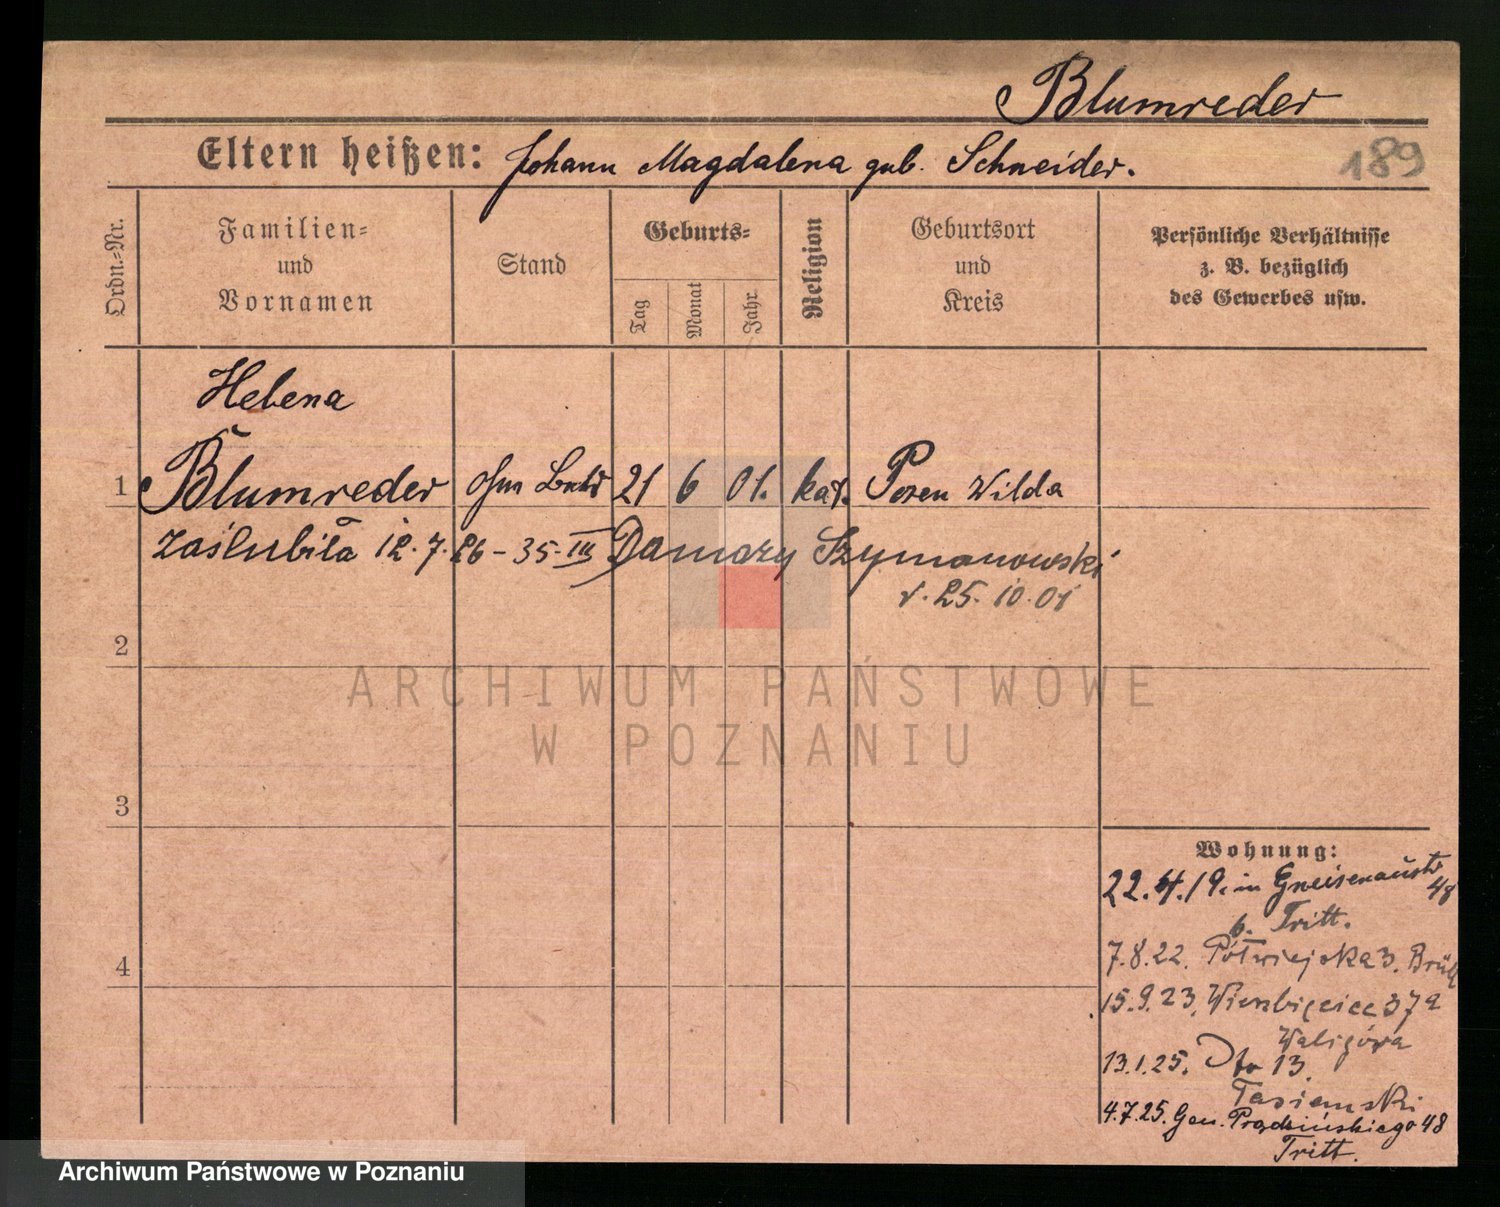 Blumreder
Eltern heißen: Johann Magdalena geb. Schneider.
189
Ordn.-Nr.
Familien- und Vornamen
Stand
Geburts-
Tag
Monat
Jahr
Religion
Geburtsort und Kreis
Persönliche Verhältnisse
z. B. bezüglich
des Gewerbes usw.
Helena
1 Blumreder ohne 21 6 01. kat. Posen Wilda
zaślubiła 12.7.26 - 35-III Damazy Szymanowski
25.10.01
2
3
4
Wohnung:
22.4.19. in Gneisenaustr 48
b. Tritt.
7.8.22. Półwiejska 3. Brüll
15.9.23. Wierzbięcice 37a
Waligóra
13.1.25. Dto 13.
Tasiemski
4.7.25. Gen. Prądzińskiego 48
Tritt.
ARCHIWUM PAŃSTWOWE
W POZNANIU
Archiwum Państwowe w Poznaniu